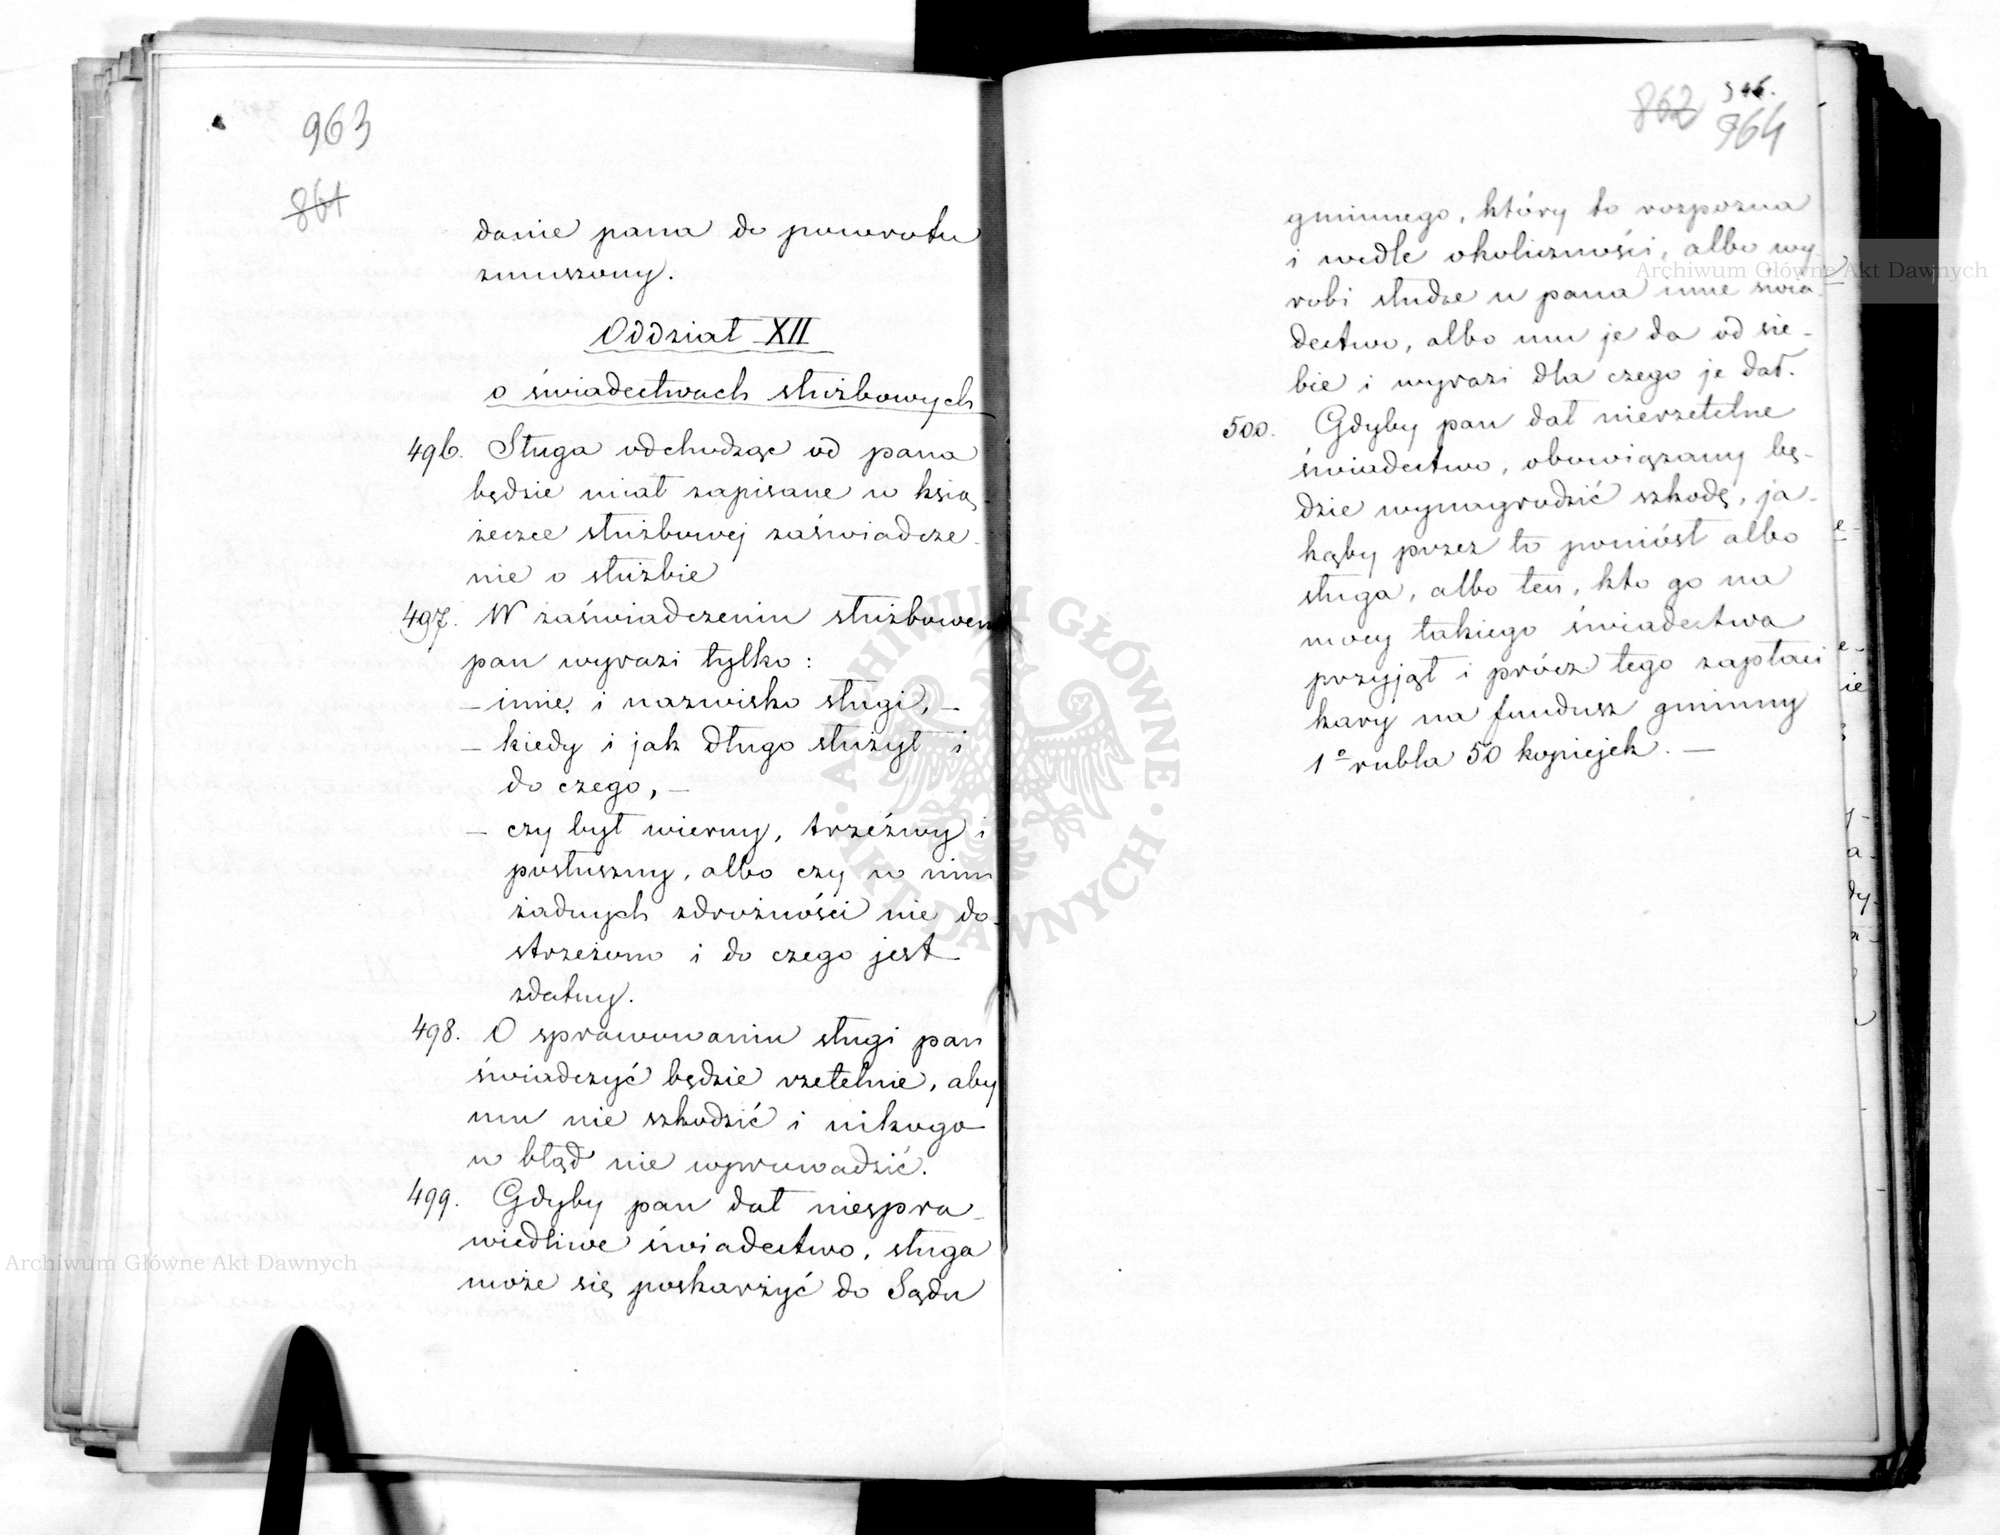 963
861
danie pana do powrotu
zmuszony.
Oddział XII
o świadectwach służbowych
496. Sługa odchodząc od pana
będzie miał zapisane w ksią-
żeczce służbowej zaświadcze-
nie o służbie
497. W zaświadczeniu służbowem
pan wyrazi tylko:
– imię i nazwisko sługi, –
– kiedy i jak długo służył i
do czego, –
– czy był wierny, trzeźwy i
posłuszny, albo czy w nim
żadnych zdrożności nie do-
strzeżono i do czego jest
zdatny.
498. O sprawowaniu sługi pan
świadczyć będzie rzetelnie, aby
mu nie szkodzić i nikogo
w błąd nie wprowadzić.
499. Gdyby pan dał niespra-
wiedliwe świadectwo, sługa
może się poskarżyć do Sądu
862 964
gminnego, który to rozpozna
i wedle okoliczności, albo wy-
robi słudze u pana inne świa-
dectwo, albo mu je da od sie-
bie i wyrazi dla czego je dał.
500. Gdyby pan dał nierzetelne
świadectwo, obowiązany bę-
dzie wynagrodzić szkodę, ja-
kąby przez to poniósł albo
sługa, albo ten, kto go na
mocy takiego świadectwa
przyjął i prócz tego zapłaci
kary na fundusz gminny
1º rubla 50 kopiejek. –
Archiwum Główne Akt Dawnych
Archiwum Główne Akt Dawnych
ARCHIWUM GŁÓWNE · AKT DAWNYCH ·